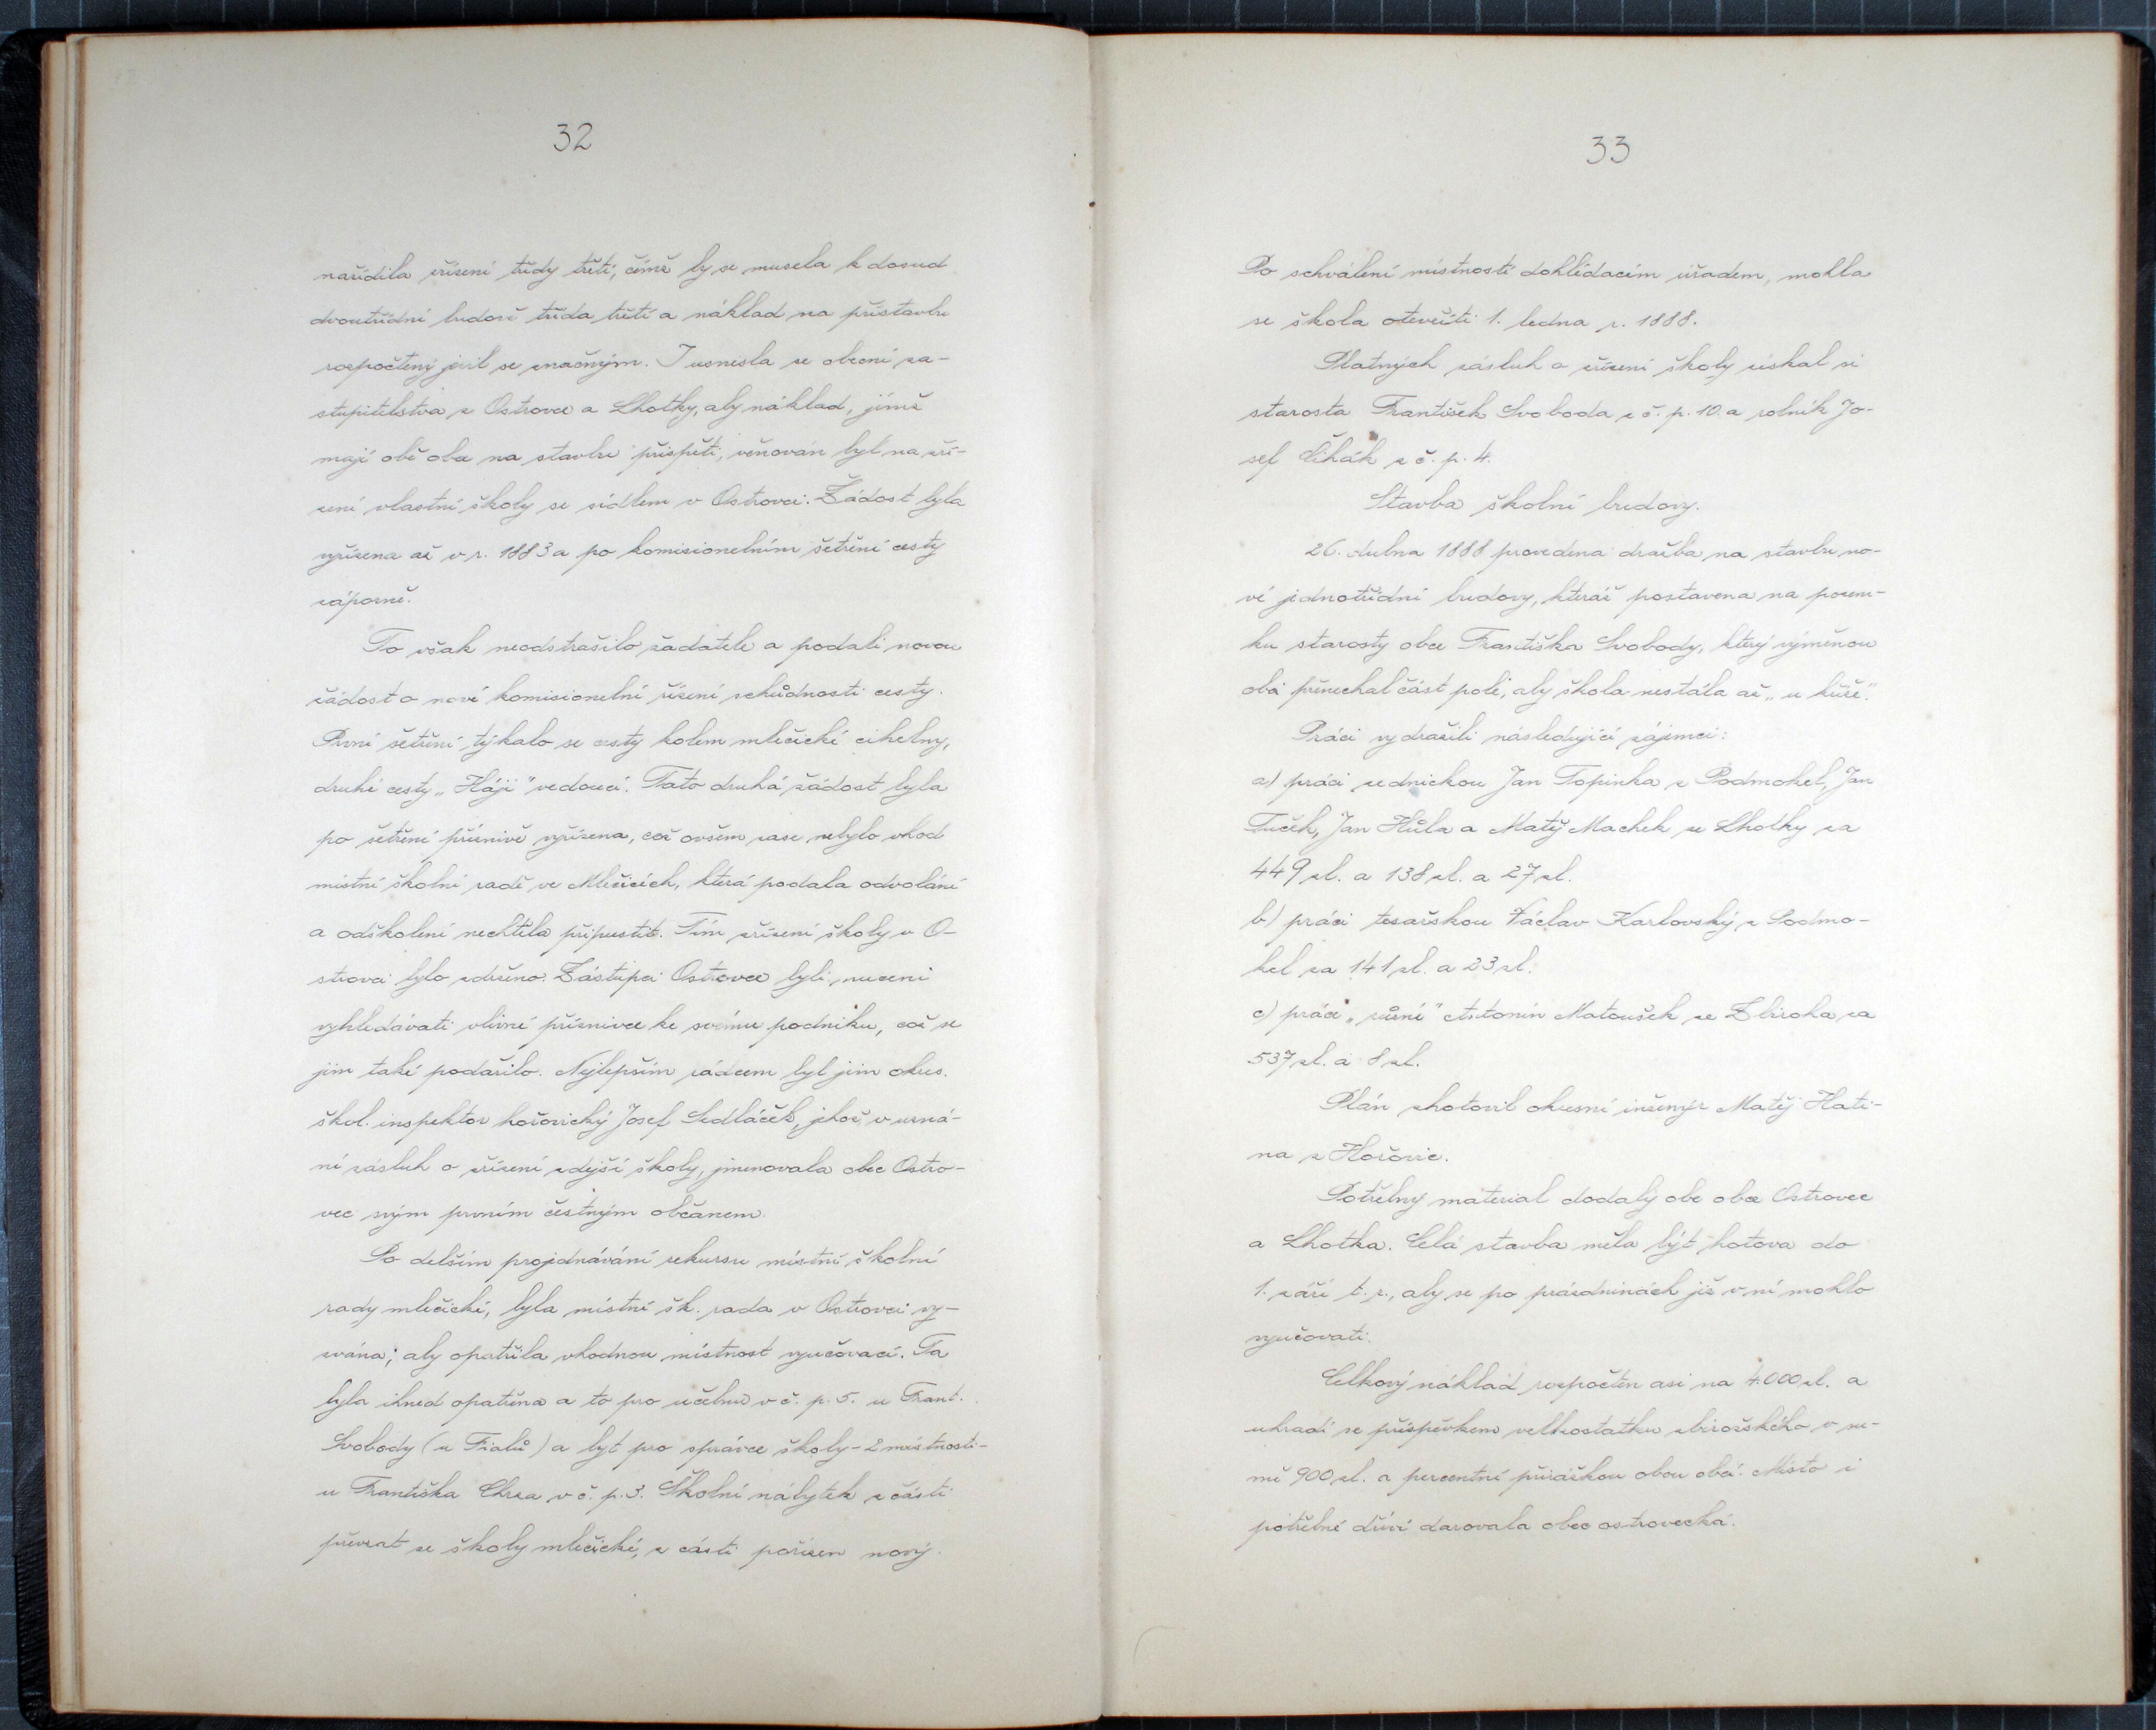 32
nařídila zřízení třídy třetí, čímž by se musela k dosud
dvoutřídní budově třída třetí a náklad na přístavbu
rozpočtený jevil se značným. I usnesla se obecní za-
stupitelstva z Ostrovce a Lhotky, aby náklad, jímž
mají obě obce na stavbu přispěti, věnován byl na zří-
zení vlastní školy se sídlem v Ostrovci. Žádost byla
vyřízena až v r. 1883 a po komisionelním šetření cesty
záporně.
To však neodstrašilo žadatele a podali novou
žádost o nové komisionelní řízení schůdnosti cesty.
První šetření týkalo se cesty kolem mlečické cihelny,
druhé cesty „Háji" vedoucí. Tato druhá žádost byla
po šetření příznivě vyřízena, což ovšem zase nebylo vhod
místní školní radě ve Mlečicích, která podala odvolání
a odškolení nechtěla připustit. Tím zřízení školy v O-
strovci bylo zdrženo. Zástupci Ostrovce byli nuceni
vyhledávati vlivné příznivce ke svému podniku, což se
jim také podařilo. Nejlepším rádcem byl jim okres.
škol. inspektor hořovický Josef Sedláček, jehož v uzná-
ní zásluh o zřízení zdejší školy, jmenovala obec Ostro-
vec svým prvním čestným občanem.
Po delším projednávání rekursu místní školní
rady mlečické, byla místní šk. rada v Ostrovci vy-
zvána, aby opatřila vhodnou místnost vyučovací. Ta
byla ihned opatřena a to pro učebnu v č. p. 5. u Frant.
Svobody (u Fialů) a byt pro správce školy - 2 místnosti -
u Františka Chrza v č. p. 3. Školní nábytek z části
převzat ze školy mlečické, z části pořízen nový.
33
Po schválení místností dohlédacím úřadem, mohla
se škola otevříti 1. ledna r. 1888.
Platných zásluh o zřízení školy získal si
starosta František Svoboda z č. p. 10. a rolník Jo-
sef Čihák z č. p. 4.
Stavba školní budovy.
26. dubna 1888 provedena dražba na stavbu no-
vé jednotřídní budovy, kteráž postavena na pozem-
ku starosty obce Františka Svobody, který výměnou
obci přenechal část polí, aby škola nestála až „u kříže".
Práci vydražili následující zájemci:
a) práci zednickou Jan Topinka z Podmokel, Jan
Tuček, Jan Hůla a Matěj Machek ze Lhotky za
449 zl. a 138 zl. a 27 zl.
b) práci tesařskou Václav Karlovský z Podmo-
kel za 141 zl. a 23 zl.
c) práce „různé" Antonín Matoušek ze Zbiroha za
537 zl. a 8 zl.
Plán zhotovil okresní inženýr Matěj Hati-
na z Hořovic.
Potřebný material dodaly obe obce Ostrovec
a Lhotka. Celá stavba měla být hotova do
1. září t. r., aby se po prázdninách již v ní mohlo
vyučovati.
Celkový náklad rozpočten asi na 4.000 zl. a
uhradí se příspěvkem velkostatku zbirožského v su-
mě 900 zl. a percentní přirážkou obou obcí. Místo i
potřebné dříví darovala obec ostrovecká.